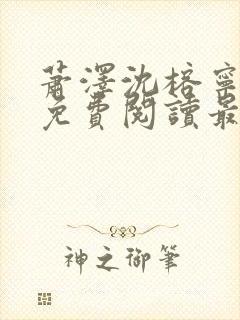 蕭澤沈棓寧
免費閱讀最
神之御筆